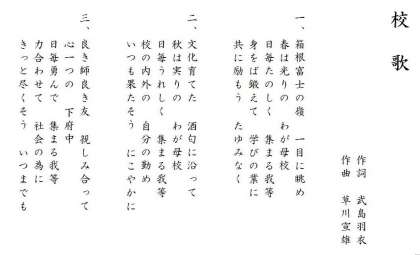 校歌
作詞 武島羽衣
作曲 草川宣雄
一、箱根富士の嶺 一目に眺め
春は光りの わが母校
日毎たのしく 集まる我等
身をば鍛えて 学びの業に
共に励もう たゆみなく
二、文化育てた 酒匂に沿って
秋は実りの わが母校
日毎うれしく 集まる我等
校の内外の 自分の勤め
いつも果たそう にこやかに
三、良き師良き友 親しみ合って
心一つの 下府中
日毎勇んで 集まる我等
力合わせて 社会の為に
きっと尽くそう いつまでも